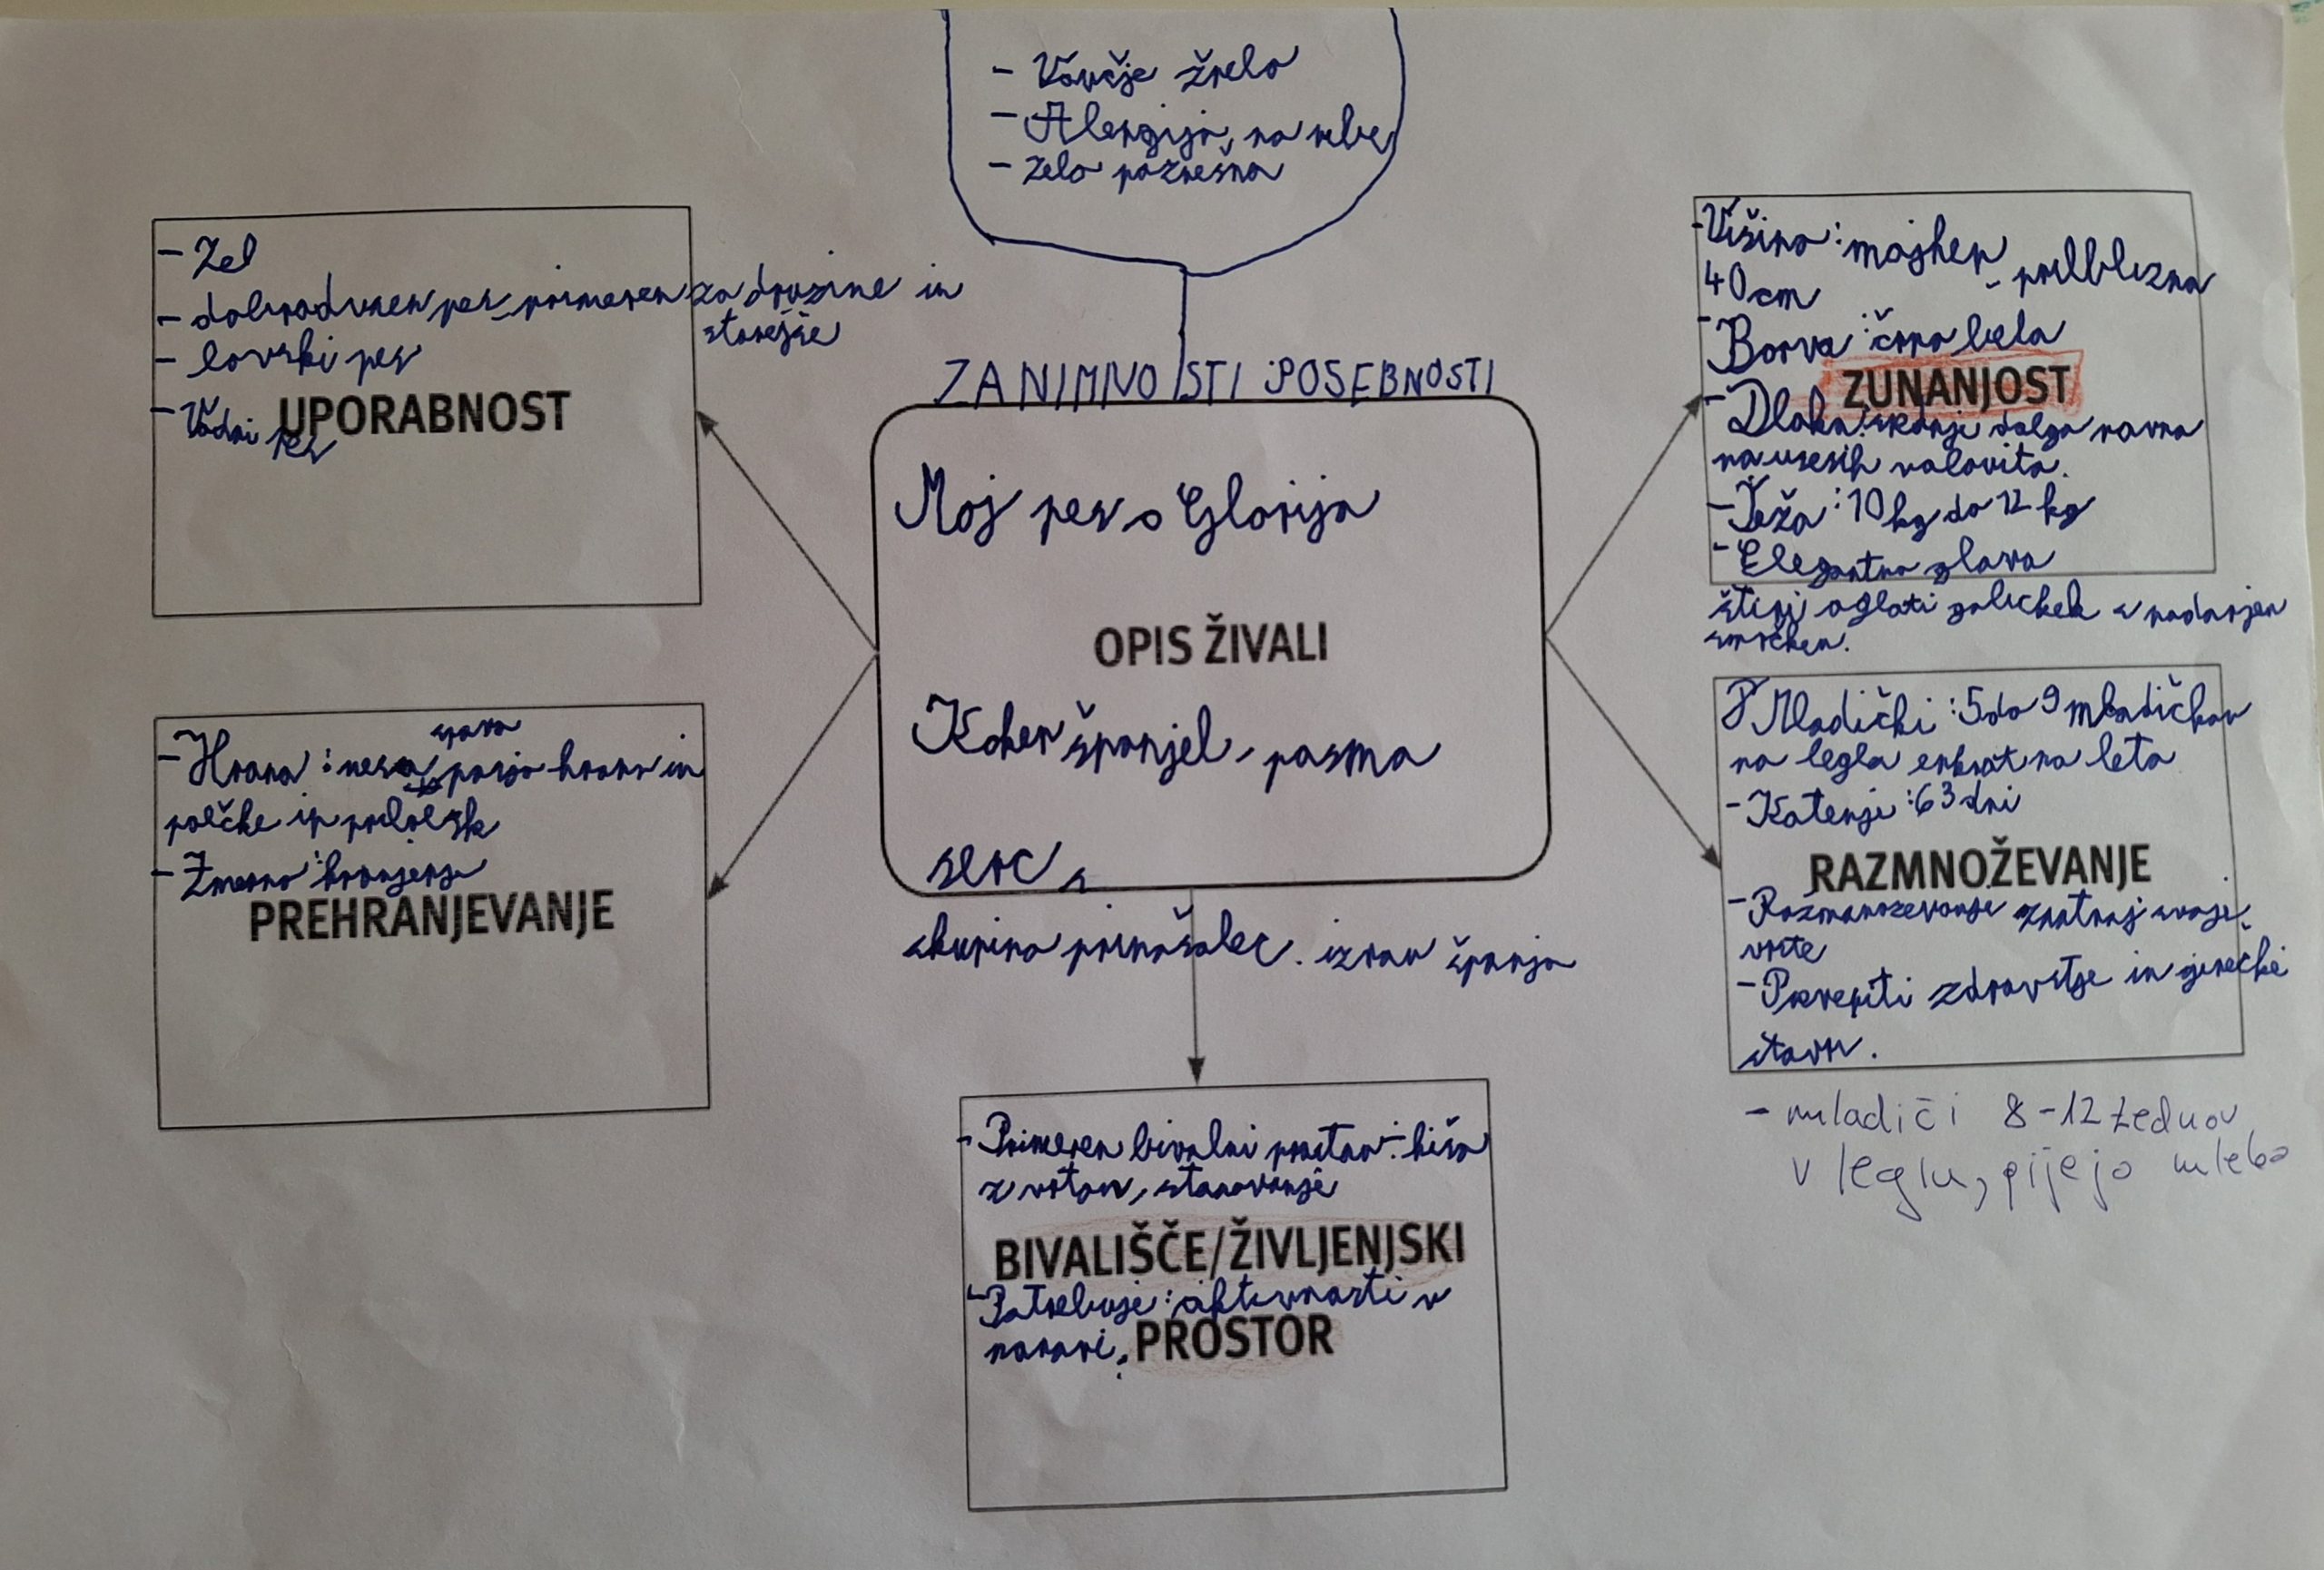 - Vovčje žrelo
- Alergija, na ribe
- zelo požrešna
ZANIMIVOSTI POSEBNOSTI
- Zel
- dobrodušen pes, primeren za družine in
starejše
- lovski pes
- Vodni pes
UPORABNOST
- Hrana : mesa, pasja hrana in
suva
palčke in
- Zmerno hranjenje
PREHRANJEVANJE
Moj pes Glorija
OPIS ŽIVALI
Koker španjel, pasma
skupina prinašalec. izrav španja
- Primeren bivalni prostor: hiša
z vrtom, stanovanje
BIVALIŠČE/ŽIVLJENJSKI
- Potrebuje: aktivnosti v
naravi.
PROSTOR
- Višina: majhen - priblizna
40 cm
- Barva: črno bela
ZUNANJOST
- Dlaka: srednje dolga ravna
na usesih valovita.
- Teža: 10 kg do 12 kg
- Elegantna glava
štiri oglati gobchek z
smrčkem.
Mladički: 5 do 9 mladičkov
na legla enkrat na leto
- Kotenje: 63 dni
RAZMNOŽEVANJE
- Razmnozevanje znotraj svoje
vrste
- Preveriti zdravstje in
stavn.
- mladiči 8-12 tednov
v leglu, pijejo mleko